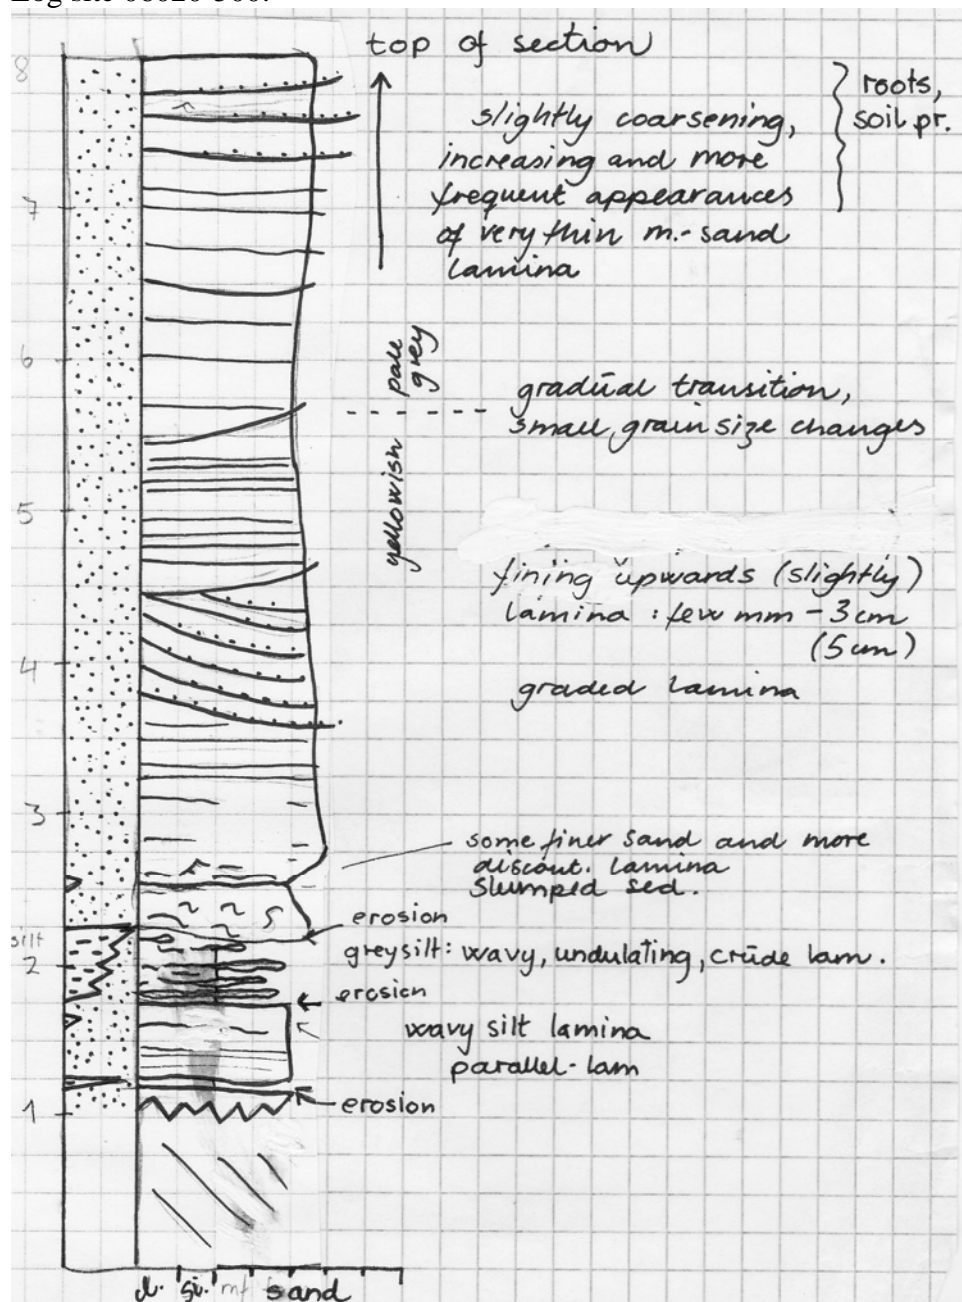 top of section
8
roots,
soil pr.
slightly coarsening,
increasing and more
frequent appearances
of very thin m.-sand
lamina
7
6
pale
grey
gradual transition,
small grain size changes
yellowish
5
fining upwards (slightly)
lamina : few mm - 3cm
(5 cm)
4
graded lamina
3
some finer sand and more
discont. lamina
Slumped sed.
erosion
silt
grey silt: wavy, undulating, crude lam.
2
erosion
wavy silt lamina
parallel-lam
erosion
1
cl. si. sand